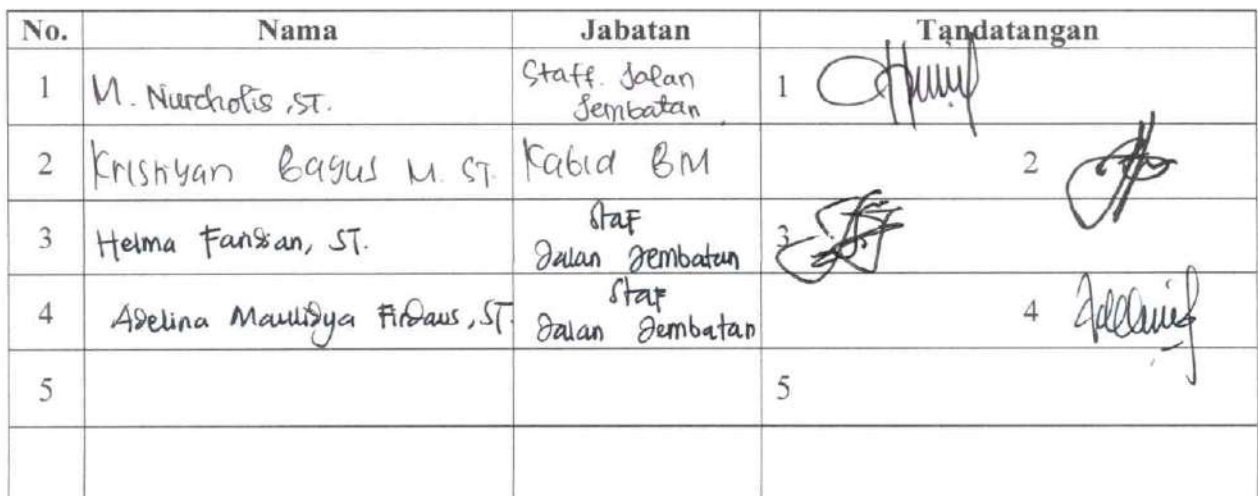 No. Nama Jabatan Tandatangan
1 M. Nurcholis, ST. Staff. Jalan Jembatan 1
2 Kristiyan Bagus M. ST. Kabid BM 2
3 Helma Fardian, ST. Staf Jalan Jembatan 3
4 Adelina Maulidya Firdaus, ST. Staf Jalan Jembatan 4
5 5